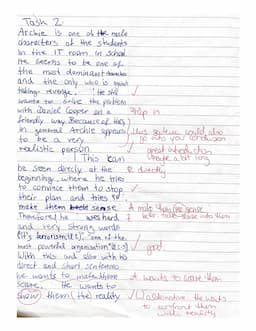 Task 2
Archie is one of the male
characters of the students
in the IT room in school.
He seems to be one of
the most dominant
and the only who is against
taking revenge. He
wants to solve the problem
with Daniel Cooper on a
friendly way. Because of this,
in general Archie appears
to be a very
realistic person.
This can
be seen directly at the
beginning, where he tries
to convince them to stop
their plan and tries to
make them sense
Therefore he uses hard
and very strong words
("It's terrorism", "one of the
most powerful organisation"
With this and also with his
direct and short sentences
he wants to make them
scare. He wants to
show them the reality
this sentence could also
go into your conclusion
great introduction
maybe a bit long
directly
make they sense
good
wants to scare them
he wants
to confront them
with reality